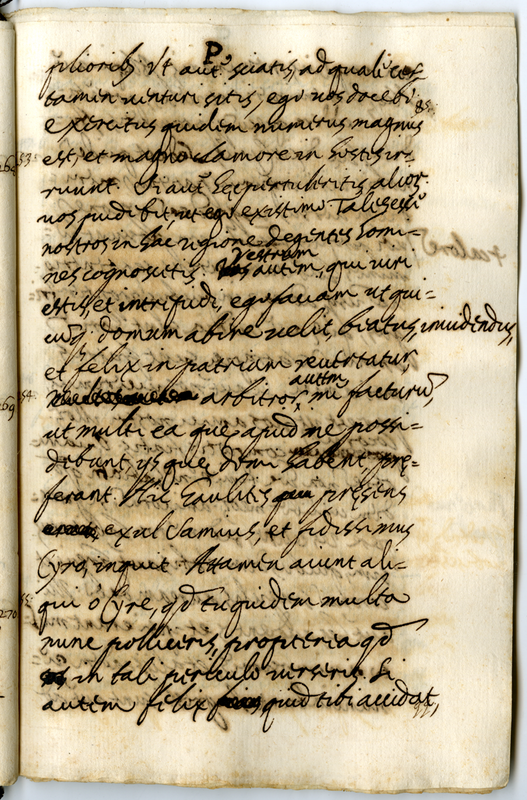 P.
pliores. Vt aut. sciatis, ad quale cer-
tamen venturi sitis, ego vos docebo.
85.
exercitus quidem numerus magnus
53.
est, et magno clamore in hostis ir-
ruunt. Si aut. haec pertuleritis, alior.
vos pudebit, ut ego existimo tales esse
nostros in hac regione degentes homi-
nes cognoscetis. Vestrum autem, qui viri
estis, et intrepidi, ego faciam ut qui-
cumq. domum abire velit, beatus, invidendus,
et felix in patriam revertatur,
54.
269
arbitror autem, me facturu,
ut multi ea que, apud me possi-
debunt, ijs que domi habent pre-
ferant. Hic Gaulites presens
exul Samius, et fidissimus
Cyro, inquit. Attamen aiunt ali-
55.
270
qui o Cyre, qd tu quidem multa
nunc polliceris, propterea qd
in tali periculo verseris. Si
autem felix quid tibi accidat,